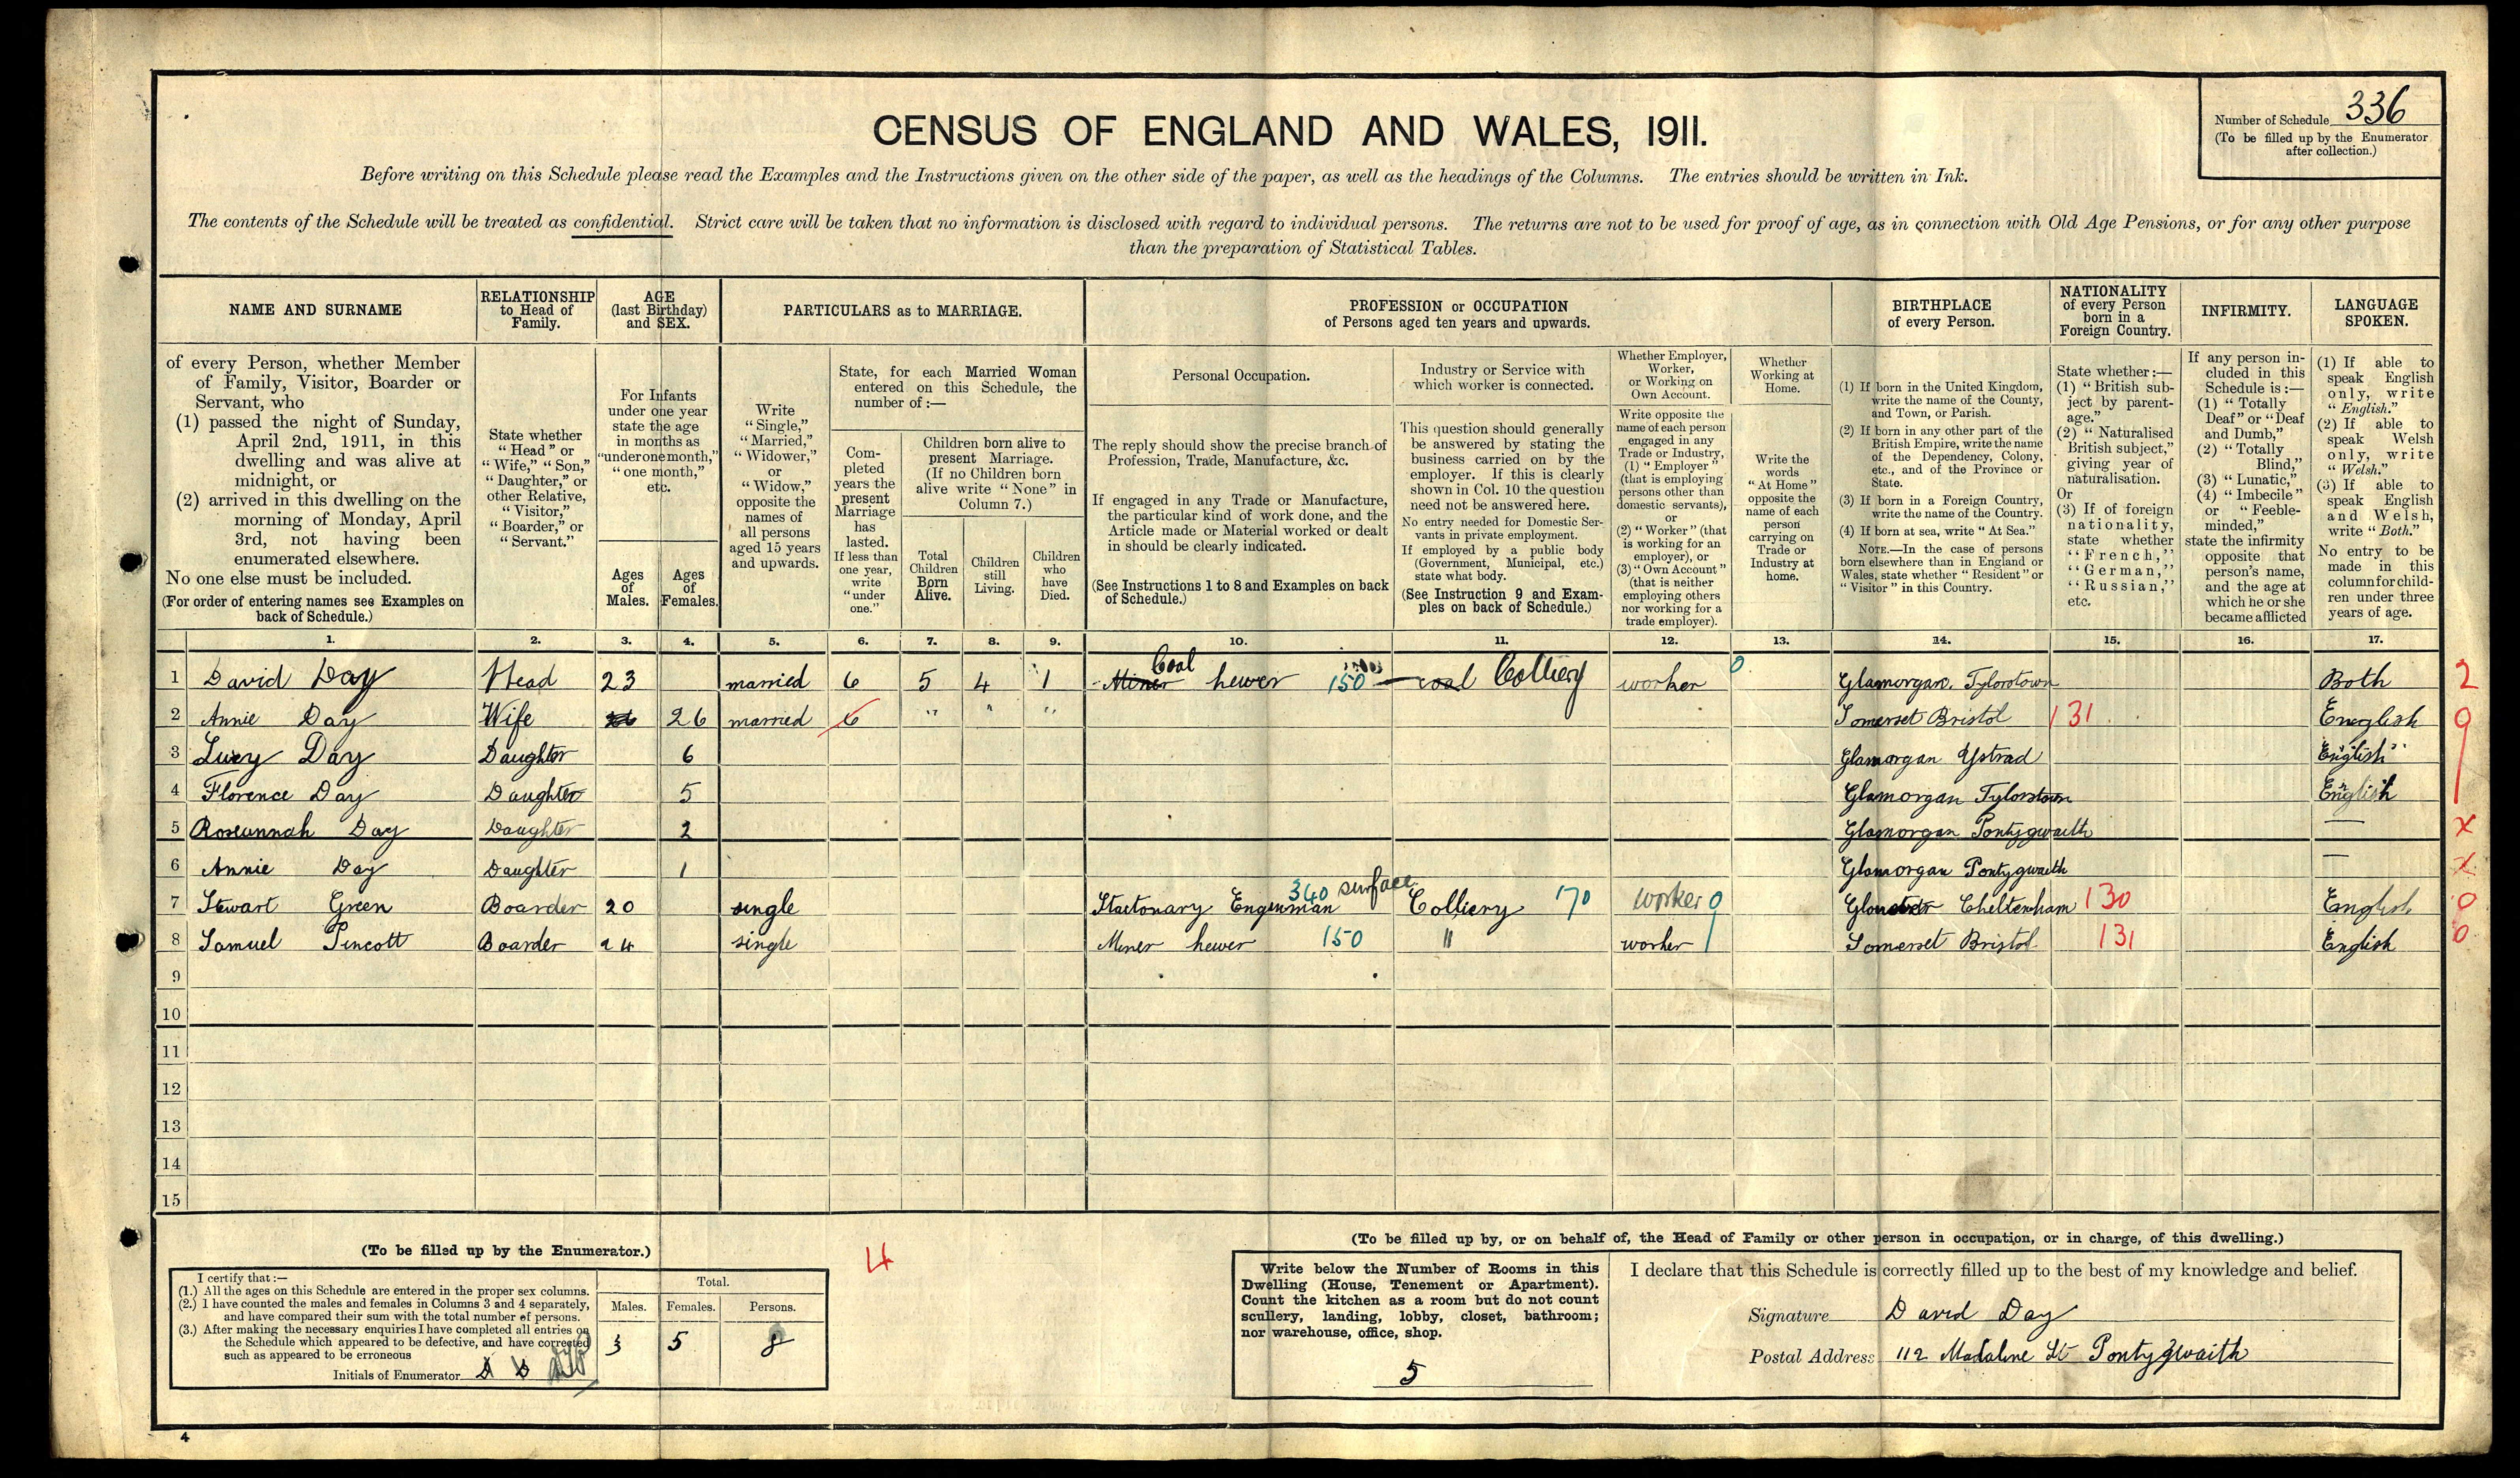 Number of Schedule 336
(To be filled up by the Enumerator
after collection.)
CENSUS OF ENGLAND AND WALES, 1911.
Before writing on this Schedule please read the Examples and the Instructions given on the other side of the paper, as well as the headings of the Columns. The entries should be written in Ink.
The contents of the Schedule will be treated as confidential. Strict care will be taken that no information is disclosed with regard to individual persons. The returns are not to be used for proof of age, as in connection with Old Age Pensions, or for any other purpose
than the preparation of Statistical Tables.
NAME AND SURNAME
of every Person, whether Member
of Family, Visitor, Boarder or
Servant, who
(1) passed the night of Sunday,
April 2nd, 1911, in this
dwelling and was alive at
midnight, or
(2) arrived in this dwelling on the
morning of Monday, April
3rd, not having been
enumerated elsewhere.
No one else must be included.
(For order of entering names see Examples on
back of Schedule.)
RELATIONSHIP
to Head of
Family.
State whether
"Head" or
"Wife," "Son,"
"Daughter," or
other Relative,
"Visitor,"
"Boarder," or
"Servant."
AGE
(last Birthday)
and SEX.
For Infants
under one year
state the age
in months as
"under one month,"
"one month,"
etc.
Ages
of
Males.
Ages
of
Females.
PARTICULARS as to MARRIAGE.
Write
"Single,"
"Married,"
"Widower,"
or
"Widow,"
opposite the
names of
all persons
aged 15 years
and upwards.
State, for each Married Woman
entered on this Schedule, the
number of :—
Com-
pleted
years the
present
Marriage
has
lasted.
If less than
one year,
write
"under
one."
Children born alive to
present Marriage.
(If no Children born
alive write "None" in
Column 7.)
Total
Children
Born
Alive.
Children
still
Living.
Children
who
have
Died.
PROFESSION or OCCUPATION
of Persons aged ten years and upwards.
Personal Occupation.
The reply should show the precise branch of
Profession, Trade, Manufacture, &c.
If engaged in any Trade or Manufacture,
the particular kind of work done, and the
Article made or Material worked or dealt
in should be clearly indicated.
(See Instructions 1 to 8 and Examples on back
of Schedule.)
Industry or Service with
which worker is connected.
This question should generally
be answered by stating the
business carried on by the
employer. If this is clearly
shown in Col. 10 the question
need not be answered here.
No entry needed for Domestic Ser-
vants in private employment.
If employed by a public body
(Government, Municipal, etc.)
state what body.
(See Instruction 9 and Exam-
ples on back of Schedule.)
Whether Employer,
Worker,
or Working on
Own Account.
Write opposite the
name of each person
engaged in any
Trade or Industry,
(1) "Employer"
(that is employing
persons other than
domestic servants),
or
(2) "Worker" (that
is working for an
employer), or
(3) "Own Account"
(that is neither
employing others
nor working for a
trade employer).
Whether
Working at
Home.
Write the
words
"At Home"
opposite the
name of each
person
carrying on
Trade or
Industry at
home.
BIRTHPLACE
of every Person.
(1) If born in the United Kingdom,
write the name of the County,
and Town, or Parish.
(2) If born in any other part of the
British Empire, write the name
of the Dependency, Colony,
etc., and of the Province or
State.
(3) If born in a Foreign Country,
write the name of the Country.
(4) If born at sea, write "At Sea."
NOTE.—In the case of persons
born elsewhere than in England or
Wales, state whether "Resident" or
"Visitor" in this Country.
NATIONALITY
of every Person
born in a
Foreign Country.
State whether :—
(1) "British sub-
ject by parent-
age."
(2) "Naturalised
British subject,"
giving year of
naturalisation.
Or
(3) If of foreign
nationality,
state whether
"French,"
"German,"
"Russian,"
etc.
INFIRMITY.
If any person in-
cluded in this
Schedule is :—
(1) "Totally
Deaf" or "Deaf
and Dumb,"
(2) "Totally
Blind,"
(3) "Lunatic,"
(4) "Imbecile"
or "Feeble-
minded,"
state the infirmity
opposite that
person's name,
and the age at
which he or she
became afflicted
LANGUAGE
SPOKEN.
(1) If able to
speak English
only, write
"English."
(2) If able to
speak Welsh
only, write
"Welsh."
(3) If able to
speak English
and Welsh,
write "Both."
No entry to be
made in this
column for child-
ren under three
years of age.
1. 2. 3. 4. 5. 6. 7. 8. 9. 10. 11. 12. 13. 14. 15. 16. 17.
1 David Day Head 23 married 6 5 4 1 Miner Coal hewer 150 coal Colliery worker 0 Glamorgan. Tylorstown Both 2
2 Annie Day Wife 26 married 6 " " " Somerset Bristol 131 English 9
3 Lucy Day Daughter 6 Glamorgan Ystrad English
4 Florence Day Daughter 5 Glamorgan Tylorstown English
5 Roseannah Day Daughter 2 Glamorgan Pontygwaith — x
6 Annie Day Daughter 1 Glamorgan Pontygwaith — x
7 Stewart Green Boarder 20 single Stactonary Enginman 340 surface Colliery 170 worker 0 Gloucester Cheltenham 130 English 0
8 Samuel Pincott Boarder 24 single Miner hewer 150 " worker 1 Somerset Bristol 131 English 0
9
10
11
12
13
14
15
(To be filled up by the Enumerator.)
I certify that :—
(1.) All the ages on this Schedule are entered in the proper sex columns.
(2.) I have counted the males and females in Columns 3 and 4 separately,
and have compared their sum with the total number of persons.
(3.) After making the necessary enquiries I have completed all entries on
the Schedule which appeared to be defective, and have corrected
such as appeared to be erroneous
Initials of Enumerator
Total.
Males. Females. Persons.
3 5 8
4
(To be filled up by, or on behalf of, the Head of Family or other person in occupation, or in charge, of this dwelling.)
Write below the Number of Rooms in this
Dwelling (House, Tenement or Apartment).
Count the kitchen as a room but do not count
scullery, landing, lobby, closet, bathroom;
nor warehouse, office, shop.
5
I declare that this Schedule is correctly filled up to the best of my knowledge and belief.
Signature David Day
Postal Address 112 Madaline St Pontygwaith
4